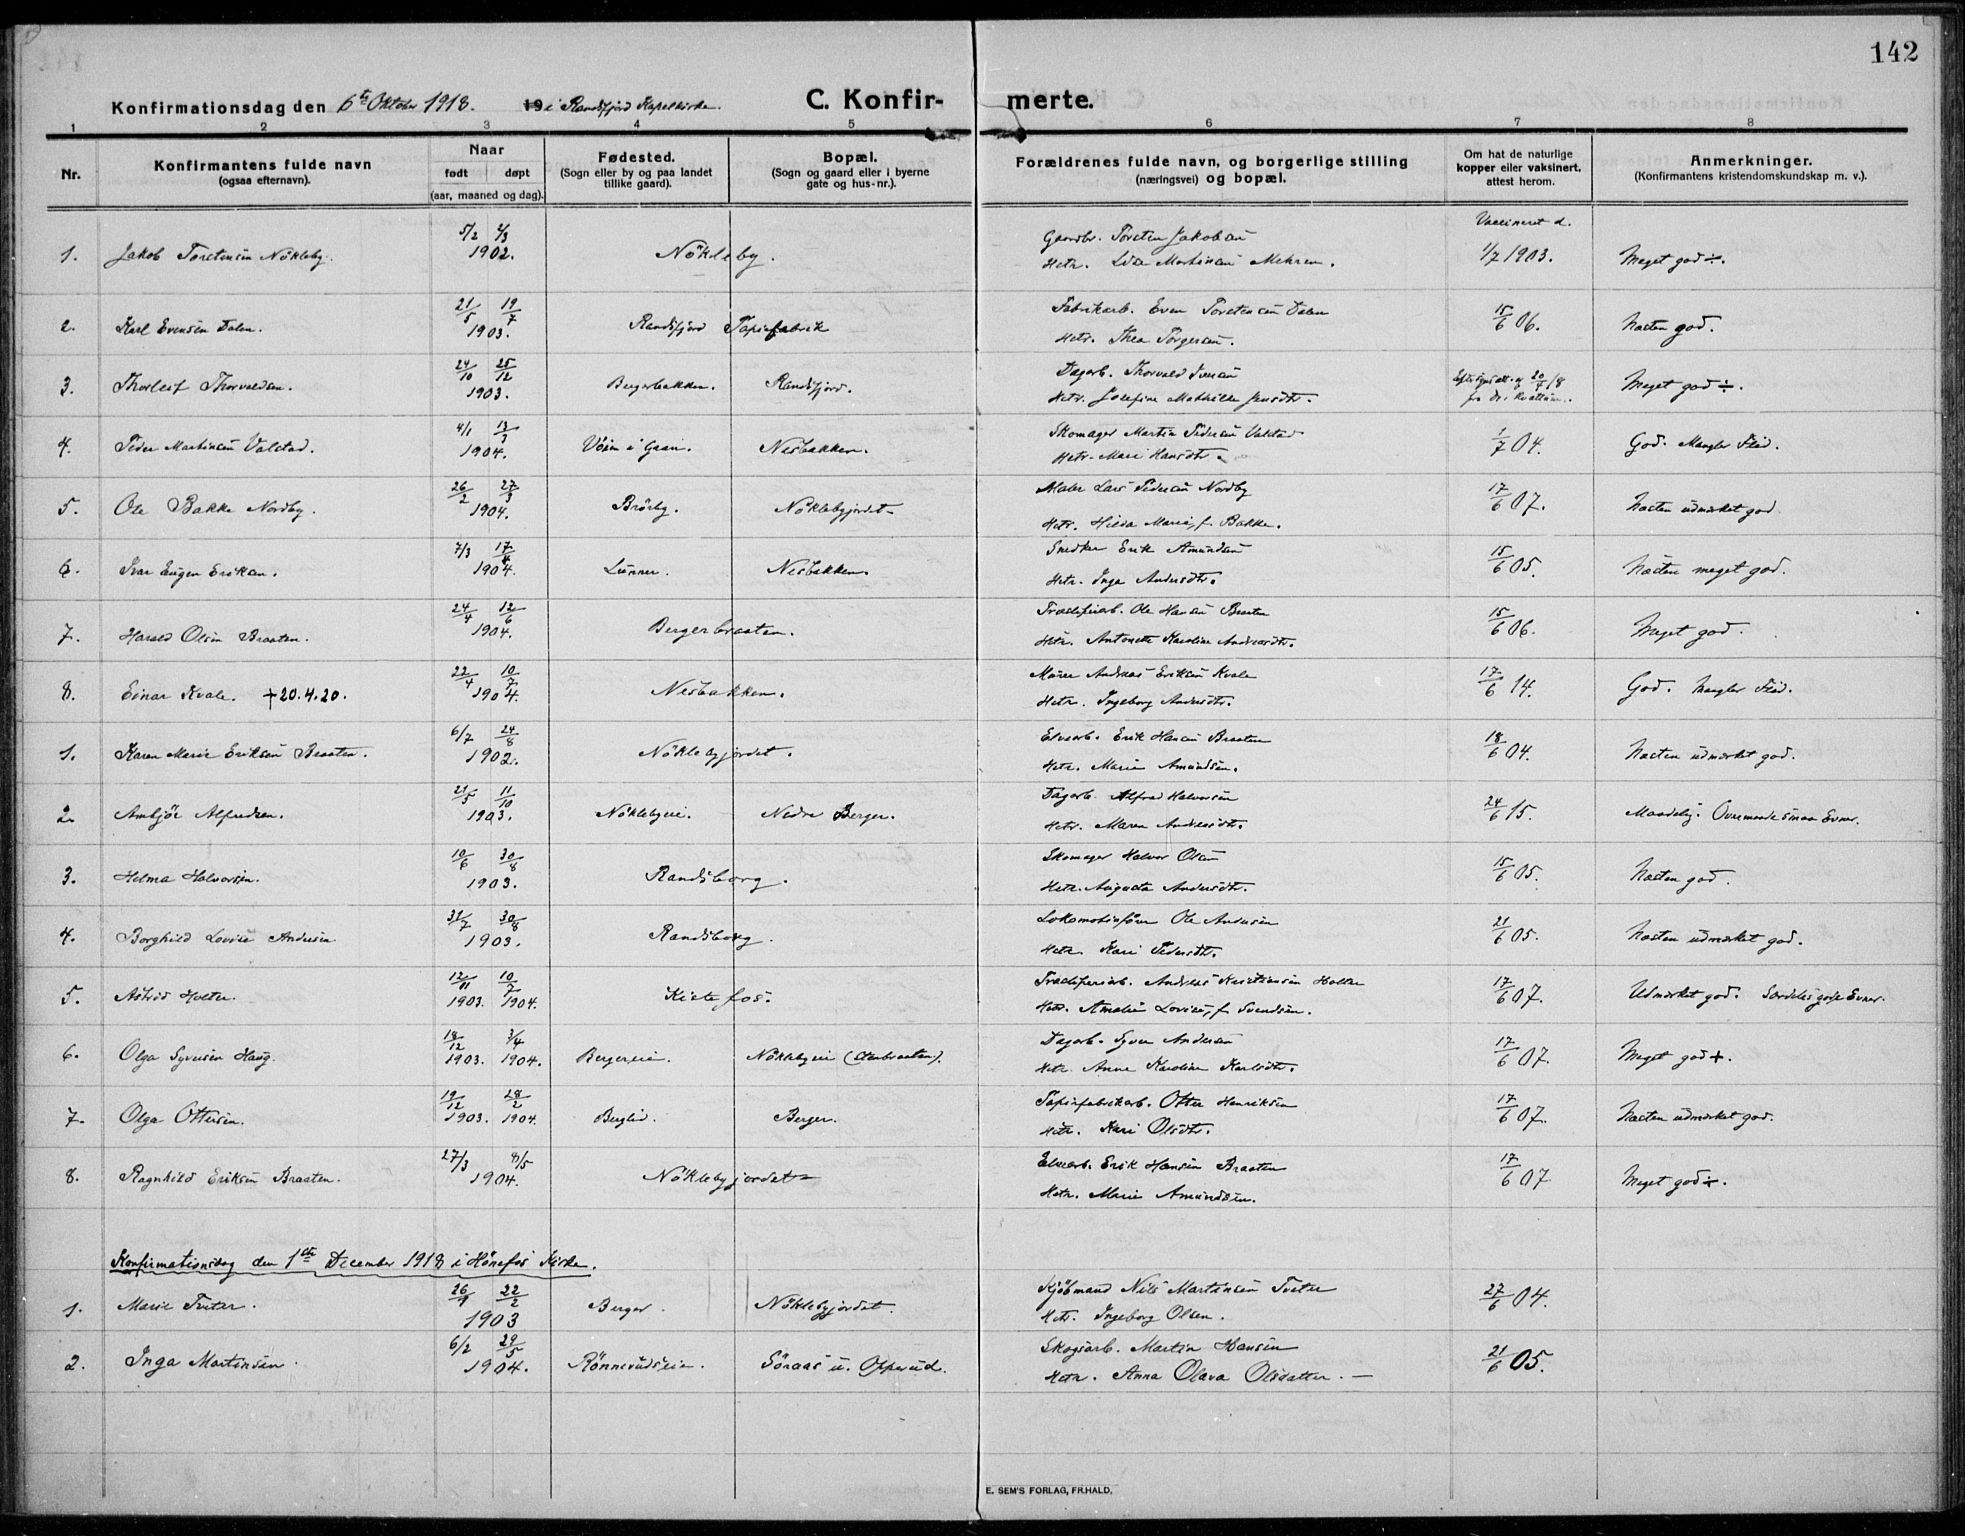 142
Konfirmationsdag den 6te Oktober 1918. 19 i Randsfjord Kapelkirke. C. Konfirmerte.
1 2 3 4 5 6 7 8
Nr. Konfirmantens fulde navn (ogsaa efternavn). Naar født døpt (aar, maaned og dag). Fødested. (Sogn eller by og paa landet tillike gaard). Bopæl. (Sogn og gaard eller i byerne gate og hus-nr.). Forældrenes fulde navn, og borgerlige stilling (næringsvei) og bopæl. Om hat de naturlige kopper eller vaksinert, attest herom. Anmerkninger. (Konfirmantens kristendomskundskap m. v.).
1. Jakob Torstensen Nökleby. 5/2 2/3 1902. Nökleby. Gaardbr. Torsten Jakobsen Hstr. Lise Martinsen Mehren. Vaccineret d. 1/7 1903. Meget god ÷.
2. Karl Evensen Dalen. 21/5 19/7 1903. Randsfjord Papirfabrik Fabrikarb. Even Torstensen Dalen Hstr. Thea Torgersen. 15/6 06. Næsten god.
3. Thorleif Thorvaldsen. 24/10 25/12 1903. Bergerbakken. Randsfjord. Dagarb. Thorvald Iversen Hstr. Josefine Mathilde Jensdtr. 20/7 18 fra dr. Meget god ÷.
4. Peder Martinsen Valstad. 4/1 13/3 1904. Vöien i Gran. Nesbakken. Skomager Martin Pedersen Valstad Hstr. Mari Hansdtr. 1/7 04. God. Mangler Flid.
5. Ole Bakke Nordby. 26/2 27/3 1904. Brörby. Nöklebyjordet Maler Lars Pedersen Nordby Hstr. Hilda Marie, f. Bakke. 17/6 07. Næsten udmærket god
6. Ivar Eugen Eriksen. 7/3 17/4 1904. Lunner. Nesbakken. Snedker Erik Amundsen Hstr. Inga Andersdtr. 15/6 05. Næsten meget god.
7. Harald Olsen Braaten. 24/4 12/6 1904. Bergerbraaten. Træsliperiarb. Ole Hansen Braaten Hstr. Antonette Karoline Andreasdtr. 15/6 06. Meget god.
8. Einar Kvale. +20.4.20. 22/4 10/7 1904. Nesbakken. Murer Andreas Eriksen Kvale Hstr. Ingeborg Andersdtr. 17/6 14. God. Mangler Flid.
1. Karen Marie Eriksen Braaten. 6/7 24/8 1902. Nöklebyjordet. Elvearb. Erik Hansen Braaten Hstr. Marie Amundsen. 18/6 04. Næsten udmærket god.
2. Ambjör Alfredsen. 21/5 11/10 1903. Nöklebyeie. Nedre Berger. Dagarb. Alfred Halvorsen Hstr. Maren Andreasdtr. 24/6 15. Maadelig. Overmaade smaa Evner.
3. Helma Halvorsen. 10/6 30/8 1903. Randsborg. Skomager Halvor Olsen Hstr. Augusta Andersdtr. 15/6 05. Næsten god.
4. Borghild Lovise Andersen. 31/7 30/8 1903. Randsborg. Lokomotivförer Ole Andersen Hstr. Kari Pedersdtr. 21/6 05. Næsten udmærket god.
5. Astrid Holter. 12/11 1903. 10/7 1904. Kistefos. Træsliperiarb. Andreas Kristiansen Holter Hstr. Amalie Lovise, f. Svendsen. 17/6 07. Udmærket god. Særdeles gode Evner.
6. Olga Syversen Haug. 18/12 1903. 3/4 1904. Bergereie. Nöklebyeie Dagarb. Syver Andersen Hstr. Anne Karoline Karlsdtr. 17/6 07. Meget god +.
7. Olga Ottersen. 19/12 1903. 28/2 1904. Berglid. Berger. Papirfabrikarb. Otter Henriksen Hstr. Kari Olsdtr. 17/6 07. Næsten udmærket god.
8. Ragnhild Eriksen Braaten. 27/3 8/5 1904. Nöklebyjordet Elvearb. Erik Hansen Braaten Hstr. Marie Amundsen. 17/6 07 Meget god ÷.
Konfirmationsdag den 1ste December 1918 i Hönefos Kirke.
1. Marie Tveter. 26/1 22/2 1903 Berger. Nöklebyjordet. Kjöbmand Nils Martinsen Tveter Hstr. Ingeborg Olsen. 27/6 04.
2. Inga Martinsen. 6/2 29/5 1904. Rönnerudseie. Söraas u. Opperud. Skogsarb. Martin Hansen Hstr. Anna Olava Olsdatter. — 21/6 05.
E. SEM'S FORLAG, FR.HALD.